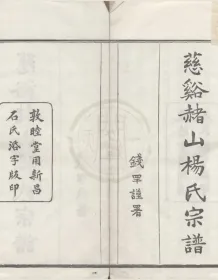 慈谿赭山楊氏宗譜
錢罕謹署
敦睦堂用新昌
石氏活字版印